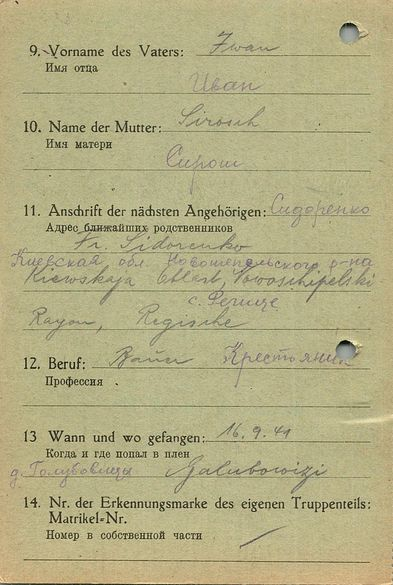 9. Vorname des Vaters: Iwan
Имя отца
Иван
10. Name der Mutter: Sirosch
Имя матери
Сирош
11. Anschrift der nächsten Angehörigen: Сидоренко
Адрес ближайших родственников
Fr. Sidorenko
Киевская обл. Новошепельского р-на
Kiewskaja Oblast, Nowoschipelski-
с. Речице
Rayon, Regische
12. Beruf: Bauer Крестьянин
Профессия
13 Wann und wo gefangen: 16.9.41
Когда и где попал в плен
д. Голубовицы Galubowizi
14. Nr. der Erkennungsmarke des eigenen Truppenteils:
Matrikel-Nr.
Номер в собственной части /